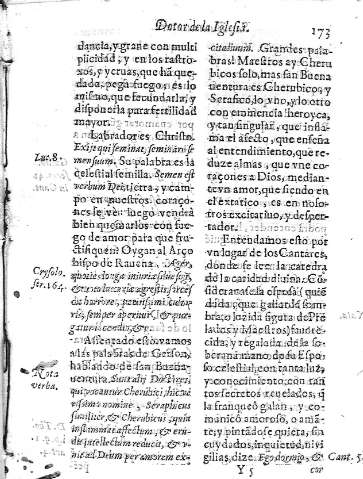 Dotor de la Iglesia. 173
dancia, y grane con multi
plicidad; y en los rastro-
xos, y yeruas, que ha que-
dado, pega fuego; es lo
mismo, que fecundarla, y
disponerla para fertilidad
mayor.
Labrador es Christo.
Exijt qui seminat, seminare se
Luc. 8.
mensuum. Su palabra es la
celestial semilla. Semen est
verbum Dei, tierra, y cam-
po en nuestros coraço-
nes le vè: luego vendrà
bien quemarlos con fue-
go de amor para que fru-
ctifiquen? Oygan al Arço
bispo de Rauena. Ager,
Crysolo.
ser. 164.
horrore,
ris, semper aperitur, & pur-
gatur incendijs, &c.
Assentado esto vamos
a las palabras de Gerson,
hablando de san Buena-
Nota
verba.
uentura.
qui vocantur Cherubici, hic ve
nomine, Seraphicus
similiter, & Cherubicus, quia
inflammat affectum, & eru-
dit intellectum reducit, & v-
nit ad Deum per amorem ex
citatiuum. Grandes pala-
bras! Maestros ay Cheru
bicos solo, mas san Buena
uentura es Cherubico, y
Serafico, lo vno, y lo otro
con eminencia heroyca,
y tan singular, que infla-
ma el afecto, que enseña
al entendimiento, que re-
duze almas, que vne co-
raçones a Dios, median-
te vn amor, que siendo en
el extatico, es en noso-
tros excitatiuo, y desper-
tador.
Entendamos esto por
vn lugar de los Cantares,
donde se lee la catedra
de la caridad diuina. Co-
la esposa (quie
duda, que gallarda som-
bra, o lozida figura de Pre
lados y Maestros) fauore-
cida, y regalada de la so-
berana mano de su Espo-
so celestial, con tanta luz,
y conocimiento, con tan
tos secretos reuelados, q
la franqueò galan, y co-
municò amoroso, o aman
te; y pintadose quieta, sin
cuydados, inquietud, ni vi
gilias, dize. Ego dormio, &
Cant. 5.
Y 5 cor